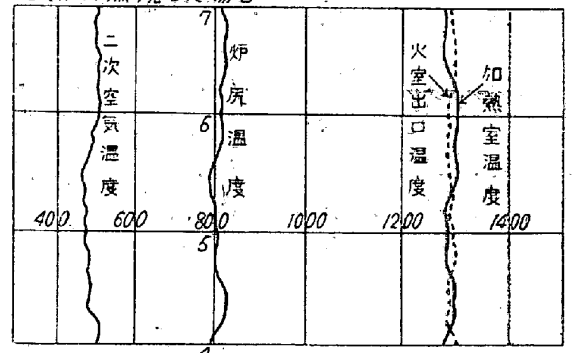 7
二次空気温度
炉尻温度
火室出口温度
加熱室温度
6
400 600 800 1000 1200 1400
5
4